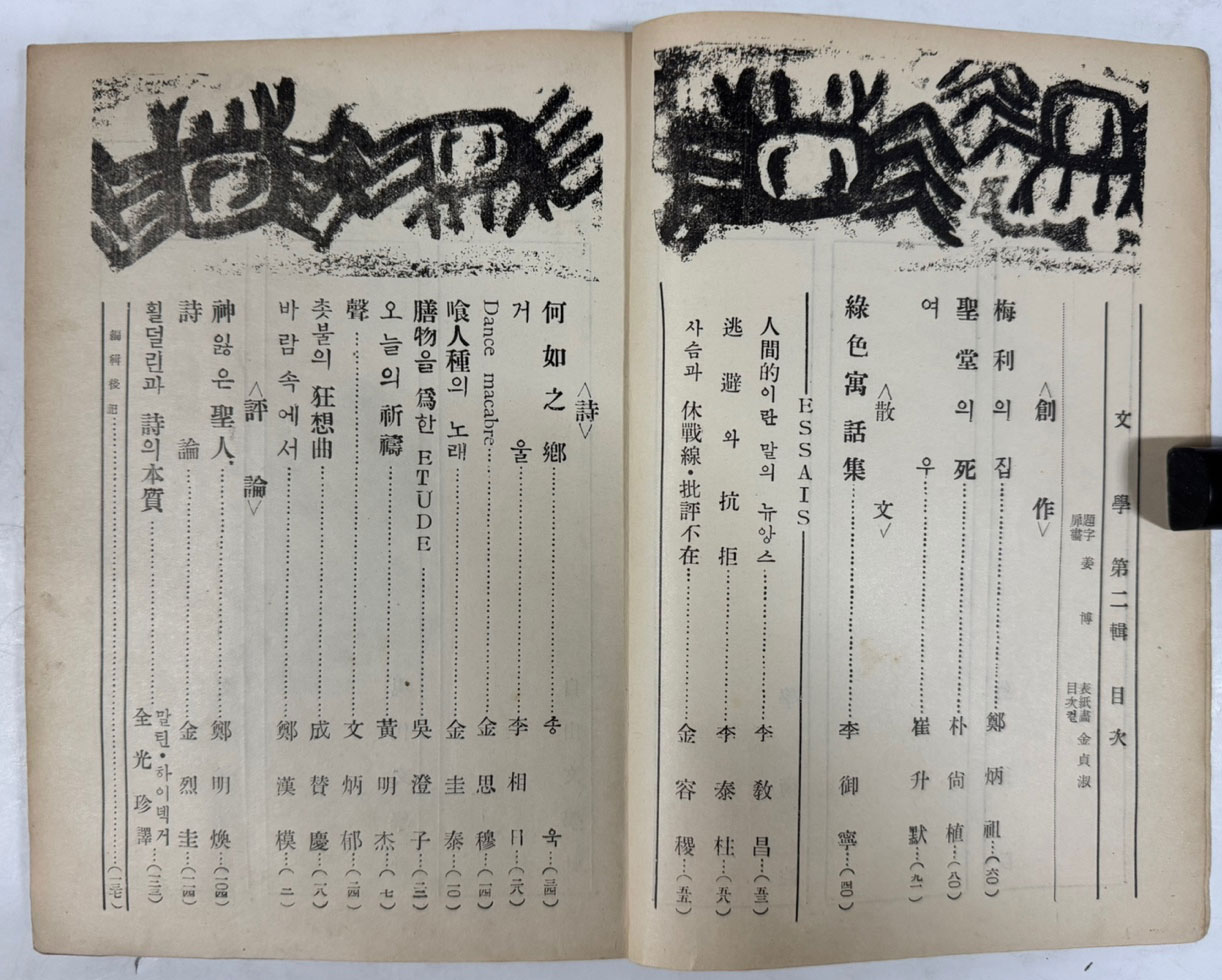 文學 第二輯 目次
題字 扉畫 姜博
表紙畫 目次컽 金貞淑
<創作>
梅利의 집 鄭炳祖 (六〇)
聖堂의 死 朴尙植 (八〇)
여우 崔升默 (九一)
<散文>
綠色寓話集 李御寧 (四〇)
ESSAIS
人間的이란 말의 뉴앙스 李敎昌 (五三)
逃避와 抗拒 李泰柱 (五八)
사슴과 休戰線・批評不在 金容稷 (五五)
<詩>
何如之鄕 송욱 (三四)
거울 李相日 (三八)
Dance macabre 金思穆 (一四)
喰人種의 노래 金圭泰 (一〇)
膳物을 爲한 ETUDE 吳澄子 (二二)
오늘의 祈禱 黃明杰 (七)
聲 文炳郁 (二四)
촛불의 狂想曲 成賛慶 (一八)
바람 속에서 鄭漢模 (二)
<評論>
神잃은 聖人 鄭明煥 (一〇四)
詩論 金烈圭 (一一四)
횔덜린과 詩의 本質 말틴・하이덱거 全光珍譯 (一二三)
編輯後記 (一三七)